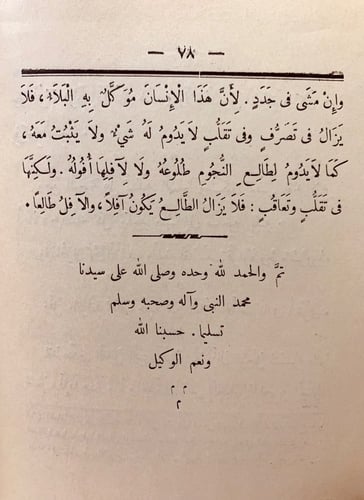 — ٧٨ —
وإِنْ مَشَى فى جَدَدٍ. لِأَنَّ هَذَا الْإِنْسَانَ مُوَكَّلٌ بِهِ الْبَلَاءُ، فَلَا
يَزَالُ فى تَصَرُّفٍ وفى تَقَلُّبٍ لَا يَدُومُ لَهُ شَىْءٌ ولَا يَثْبُتُ مَعَهُ،
كَمَا لَا يَدُومُ لِطَالِعِ النُّجُومِ طُلُوعُهُ ولَا لِآفِلِهَا أُفُولُهُ. ولَكِنَّهَا
فى تَقَلُّبٍ وتَعَاقُبٍ: فَلَا يَزَالُ الطَّالِعُ يَكُونُ آفِلًا، والآفِلُ طَالِعًا.
تمَّ والحمد لله وحده وصلى الله على سيدنا
محمد النبى وآله وصحبه وسلم
تسليما. حسبنا الله
ونعم الوكيل
م م
م